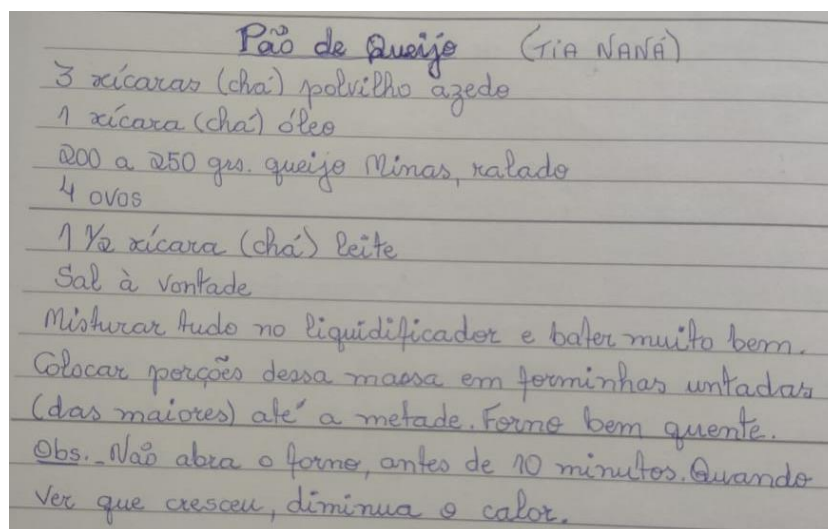 Pão de Queijo (TIA NANÁ)
3 xícaras (chá) polvilho azedo
1 xícara (chá) óleo
200 a 250 grs. queijo Minas, ralado
4 ovos
1 1/2 xícara (chá) leite
Sal à vontade
Misturar tudo no liquidificador e bater muito bem.
Colocar porções dessa massa em forminhas untadas
(das maiores) até a metade. Forno bem quente.
Obs.- Não abra o forno, antes de 10 minutos. Quando
ver que cresceu, diminua o calor.